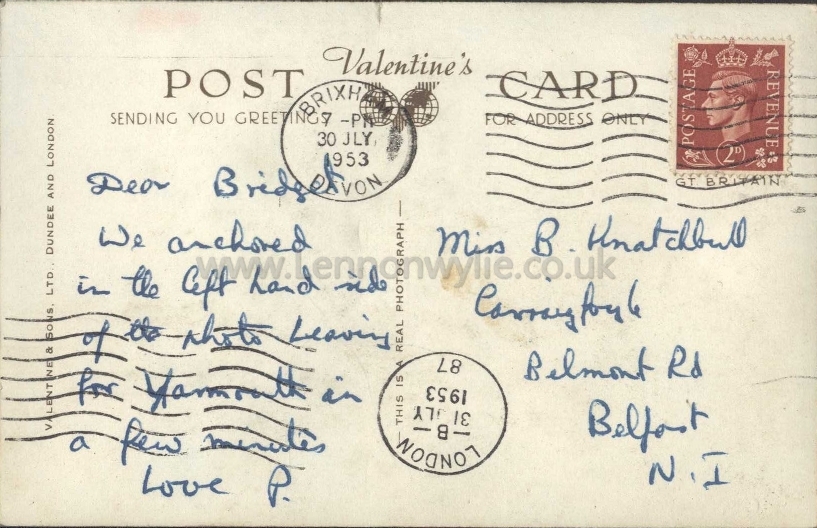 Valentine's
POST CARD
SENDING YOU GREETINGS
FOR ADDRESS ONLY
BRIXHAM
7 - PM
30 JLY
1953
DEVON
POSTAGE
REVENUE
2D
GT BRITAIN
Dear Bridget
We anchored
in the left hand side
of the photo Leaving
for Yarmouth in
a few minutes
Love P.
Miss B. Knatchbull
Belmont Rd
Belfast
N. I
VALENTINE & SONS, LTD. DUNDEE AND LONDON
THIS IS A REAL PHOTOGRAPH
LONDON
B
31 JLY
1953
87
www.Lennonwylie.co.uk